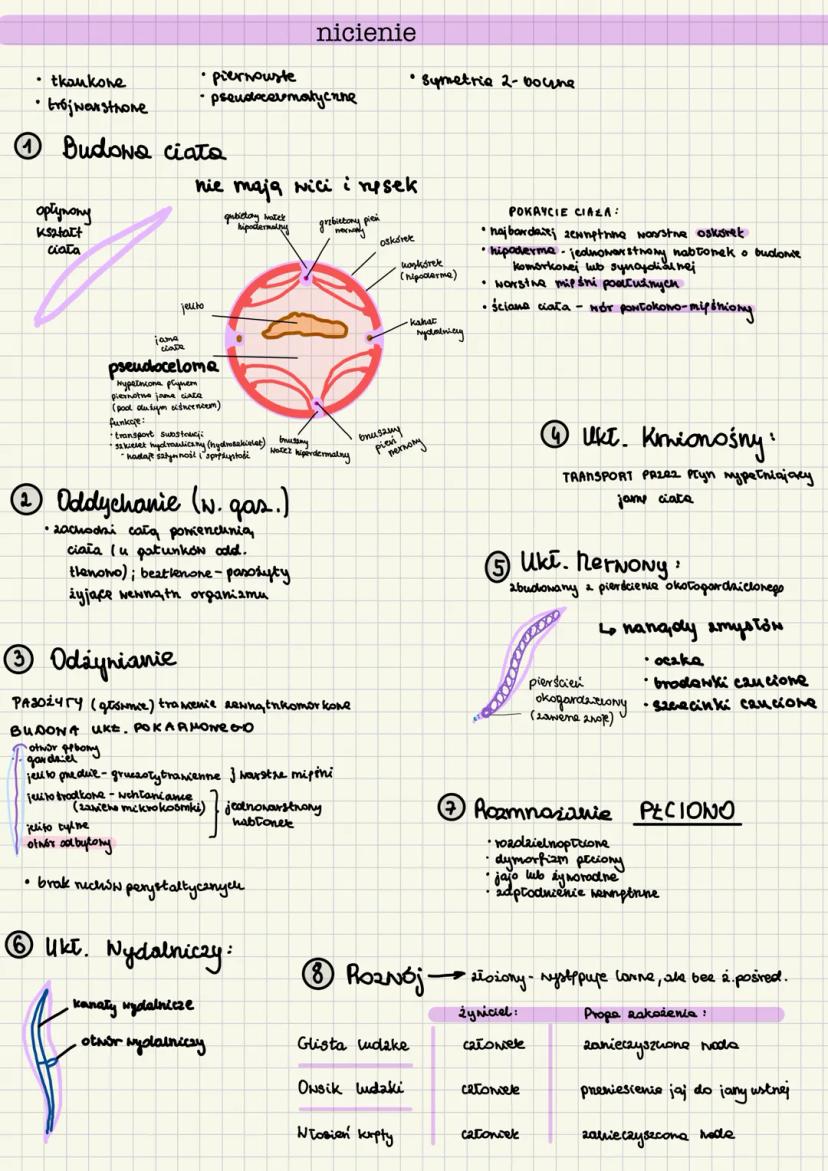 nicienie
• tkankowe
• trójwarstwowe
• pierwouste
• pseudocelomatyczne
• symetria 2-boczna
1 Budowa ciała
nie mają wici i rzęsek
opływowy
kształt
ciała
grzbietowy wałek
hipodermalny
grzbietowy pień
nerwowy
oskórek
naskórek
(hipoderma)
jelito
kanał
wydalniczy
jama
ciała
pseudoceloma
wypełniona płynem
pierwotna jama ciała
(pod dużym ciśnieniem)
funkcje:
• transport substancji
• szkielet hydrauliczny (hydroszkielet)
- nadaje sztywność i sprężystość
brzuszny
wałek hipodermalny
brzuszny
pień
nerwowy
POKRYCIE CIAŁA:
• najbardziej zewnętrzna warstwa oskórek
• hipoderma - jednowarstwowy nabłonek o budowie
komórkowej lub syncydialnej
• warstwa mięśni podłużnych
• ściana ciała - wór powłokowo-mięśniowy
2 Oddychanie (w. gaz.)
• zachodzi całą powierzchnią
ciała (u gatunków odd.
tlenowo); beztlenowe - pasożyty
żyjące wewnątrz organizmu
3 Odżywianie
PASOŻYTY (głównie) trawienie zewnątrzkomórkowe
BUDOWA UKŁ. POKARMOWEGO
otwór gębowy
gardziel
jelito przednie - gruczoły trawienne } warstwa mięśni
jelito środkowe - wchłanianie
(zawiera mikrokosmki)
jelito tylne
} jednowarstwowy
nabłonek
otwór odbytowy
• brak ruchów perystaltycznych
4 Ukł. Krwionośny:
TRANSPORT PRZEZ płyn wypełniający
jamę ciała
5 Ukł. Nerwowy:
zbudowany z pierścienia okołogardzielowego
↳ narządy zmysłów
• oczka
• brodawki czuciowe
• szczecinki czuciowe
pierścień
okołogardzielowy
(zawiera zwoje)
6 Ukł. Wydalniczy:
kanały wydalnicze
otwór wydalniczy
7 Rozmnażanie PŁCIOWO
• rozdzielnopłciowe
• dymorfizm płciowy
• jajo lub żyworodne
• zapłodnienie wewnętrzne
8 Rozwój → złożony - występuje larwa, ale bez ż. pośred.
żywiciel: Droga zakażenia:
Glista ludzka człowiek zanieczyszczona woda
Owsik ludzki człowiek przeniesienie jaj do jamy ustnej
Włosień kręty człowiek zanieczyszczona woda